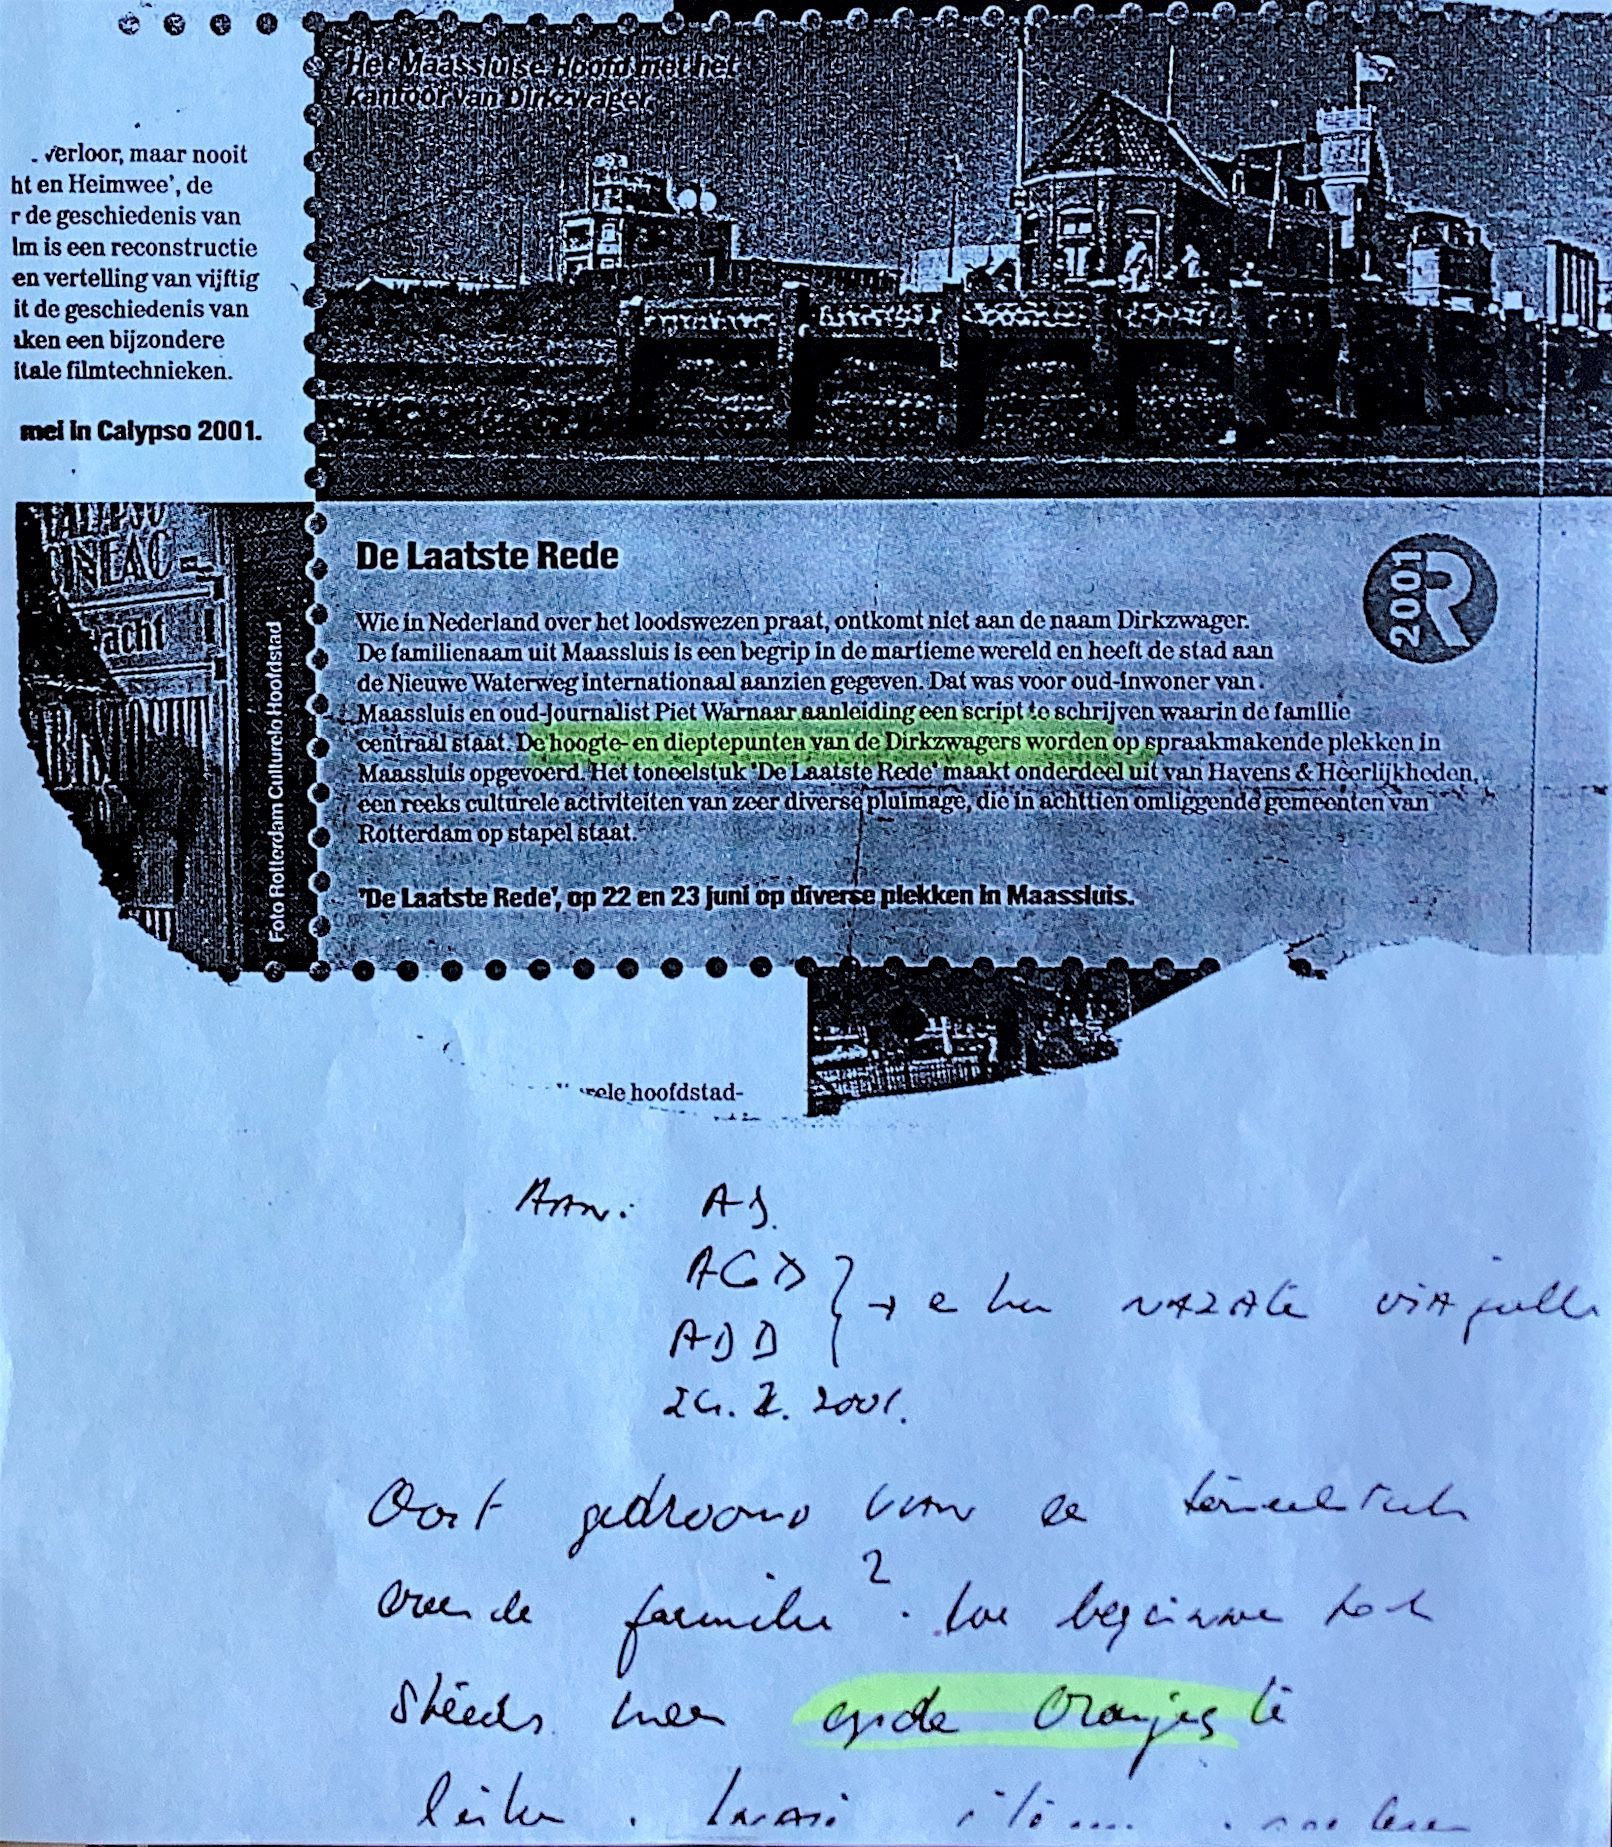 Het Maassluise Hoofd met het
kantoor van Dirkzwager
verloor, maar nooit
ht en Heimwee', de
r de geschiedenis van
lm is een reconstructie
en vertelling van vijftig
it de geschiedenis van
ken een bijzondere
itale filmtechnieken.
mei in Calypso 2001.
CINEAC
acht
Foto Rotterdam Culturele Hoofdstad
De Laatste Rede
2001 R
Wie in Nederland over het loodswezen praat, ontkomt niet aan de naam Dirkzwager.
De familienaam uit Maassluis is een begrip in de martieme wereld en heeft de stad aan
de Nieuwe Waterweg internationaal aanzien gegeven. Dat was voor oud-inwoner van
Maassluis en oud-journalist Piet Warnaar aanleiding een script te schrijven waarin de familie
centraal staat. De hoogte- en dieptepunten van de Dirkzwagers worden op spraakmakende plekken in
Maassluis opgevoerd. Het toneelstuk 'De Laatste Rede' maakt onderdeel uit van Havens & Heerlijkheden,
een reeks culturele activiteiten van zeer diverse pluimage, die in achttien omliggende gemeenten van
Rotterdam op stapel staat.
'De Laatste Rede', op 22 en 23 juni op diverse plekken in Maassluis.
rele hoofdstad-
Aan: AD.
ACD
ADD
2001.
Ooit gedroomd van een toneelstuk
over de familie? we beginnen toch
steeds meer op de Oranjes te
lijken.